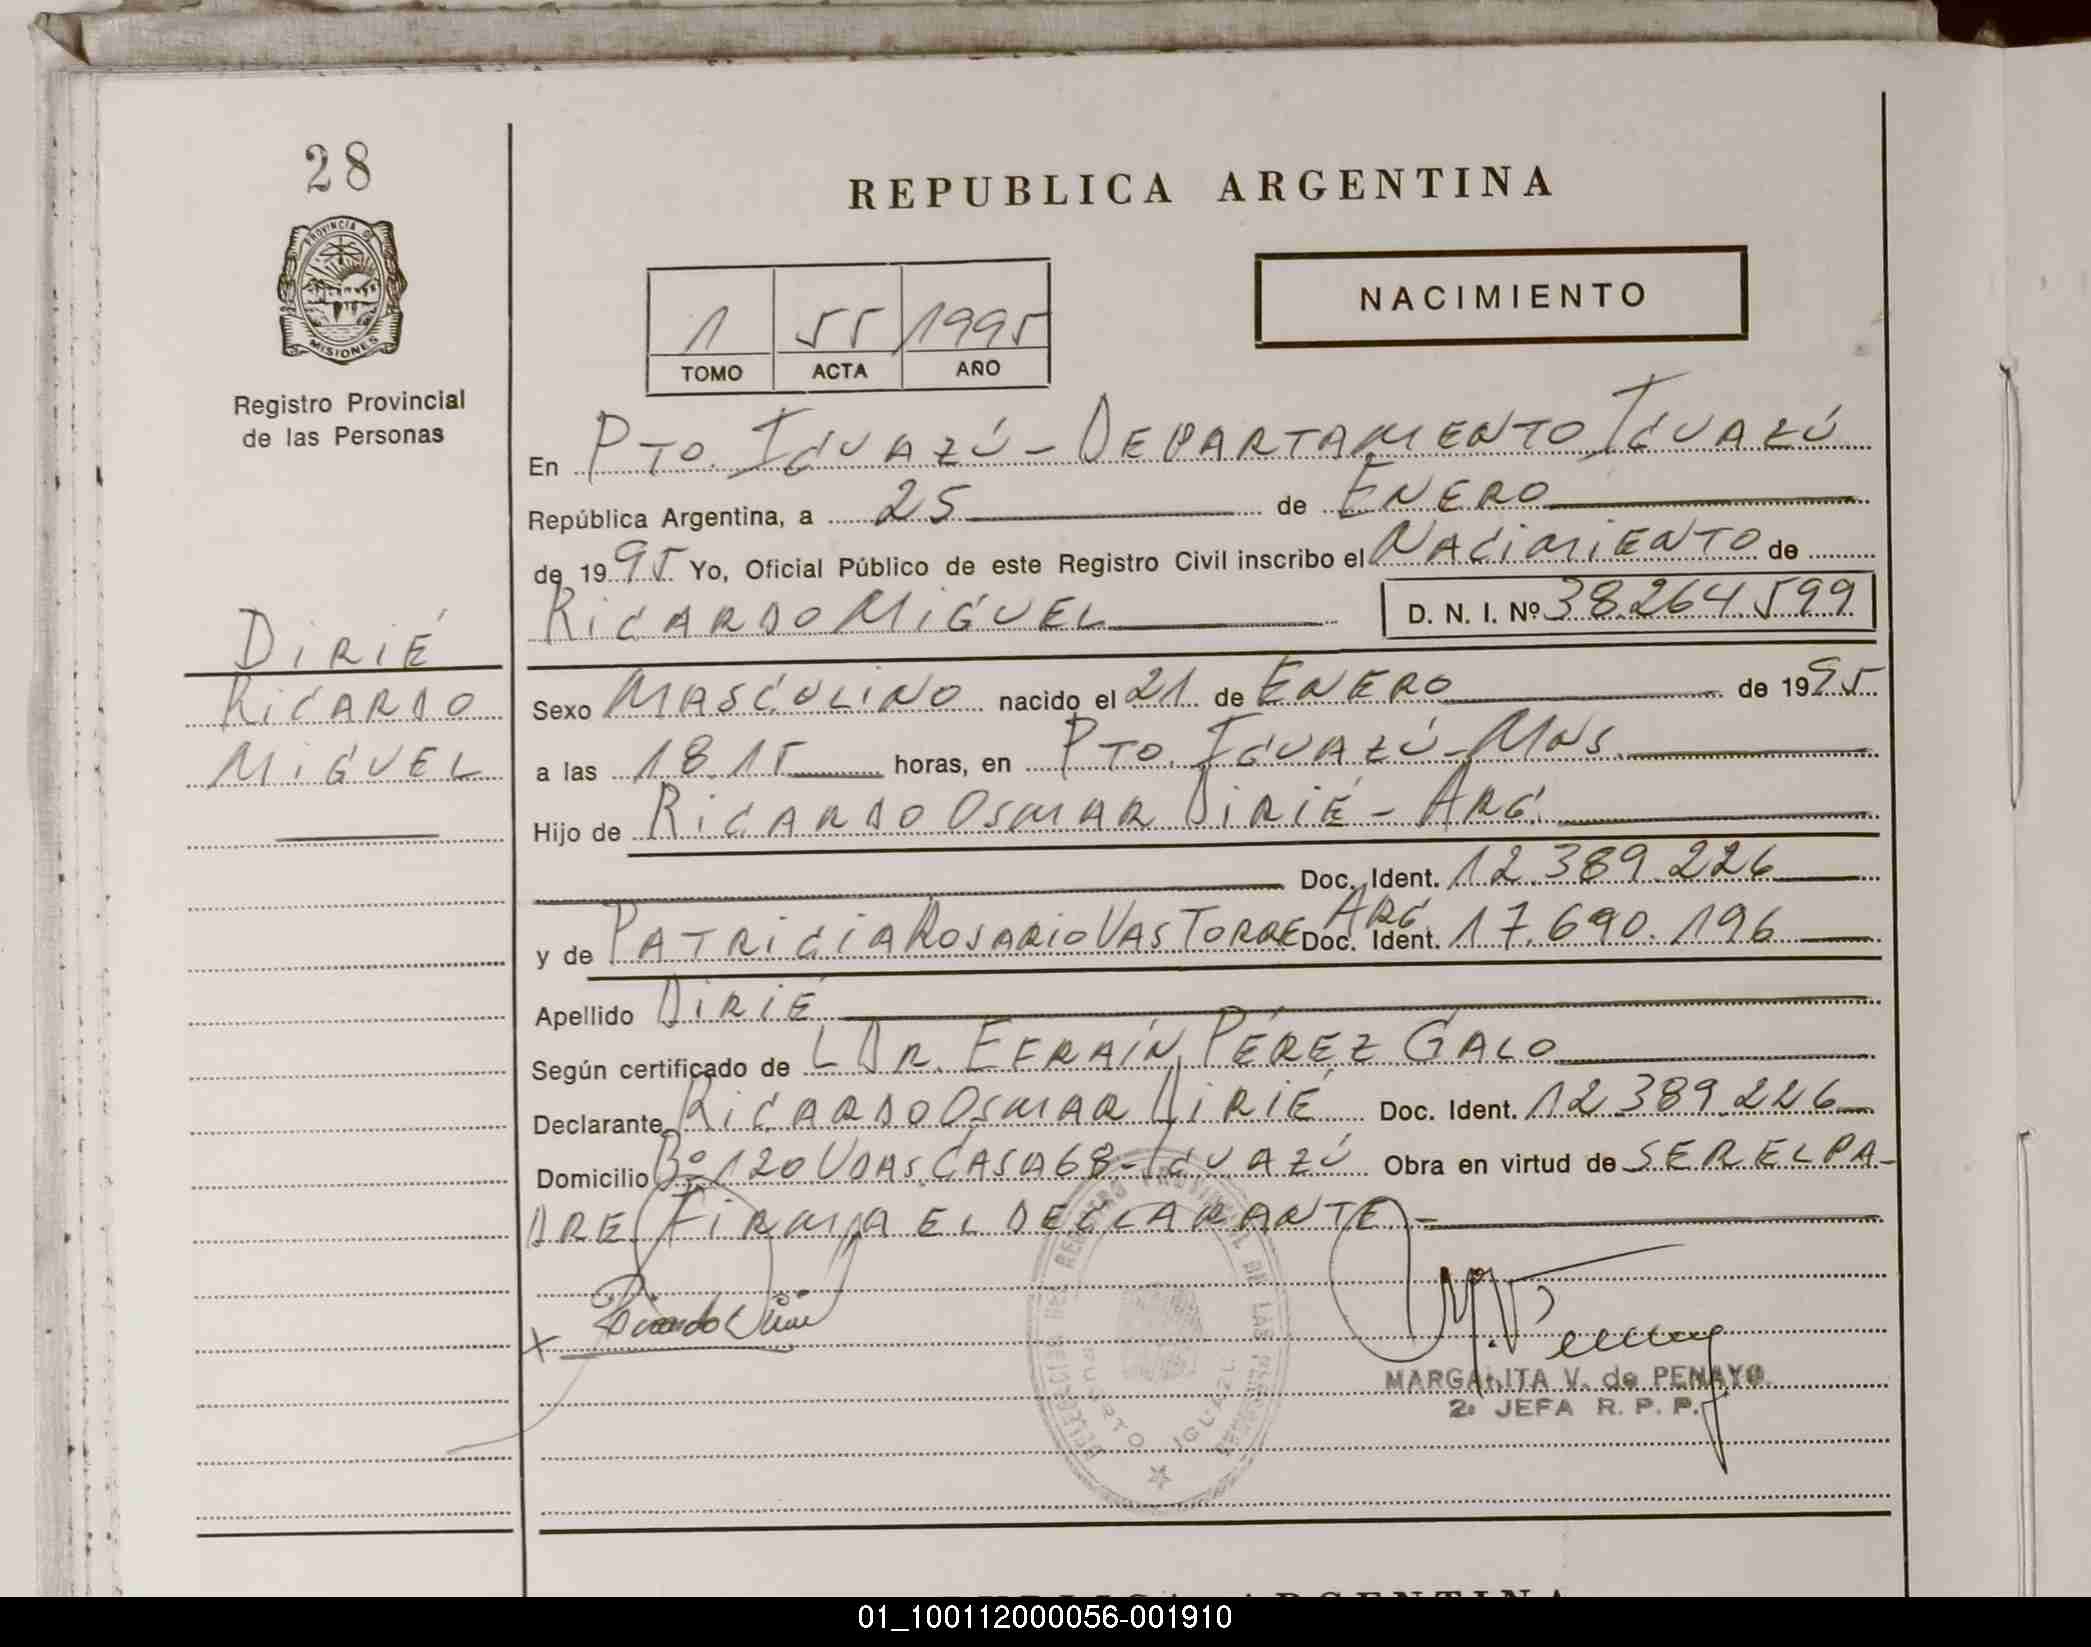 28
PROVINCIA DE
MISIONES
Registro Provincial
de las Personas
REPUBLICA ARGENTINA
NACIMIENTO
1 55 1995
TOMO ACTA AÑO
En PTO. IGUAZÚ - DEPARTAMENTO IGUAZÚ
República Argentina, a 25 de ENERO
de 1995 Yo, Oficial Público de este Registro Civil inscribo el NACIMIENTO de
RICARDO MIGUEL D. N. I. Nº 38.264.599
DIRIÉ
RICARDO
MIGUEL
Sexo MASCULINO nacido el 21 de ENERO de 1995
a las 18.15 horas, en PTO. IGUAZÚ - MNS.
Hijo de RICARDO OSMAR DIRIÉ - ARG.
Doc. Ident. 12.389.226
y de PATRICIA ROSARIO VAS TORRE ARG Doc. Ident. 17.690.196
Apellido DIRIÉ
Según certificado de L DR. EFRAÍN PÉREZ GALO
Declarante RICARDO OSMAR DIRIÉ Doc. Ident. 12.389.226
Domicilio Bº 120 VDAS. CASA 68 - IGUAZÚ Obra en virtud de SER EL PA-
DRE FIRMA EL DECLARANTE.-
REGISTRO PROVINCIAL DE LAS
PUERTO IGUAZU
X Ricardo Dirié
MARGARITA V. de PENAYO
2º JEFA R. P. P.
ARGENTINA
01_100112000056-001910